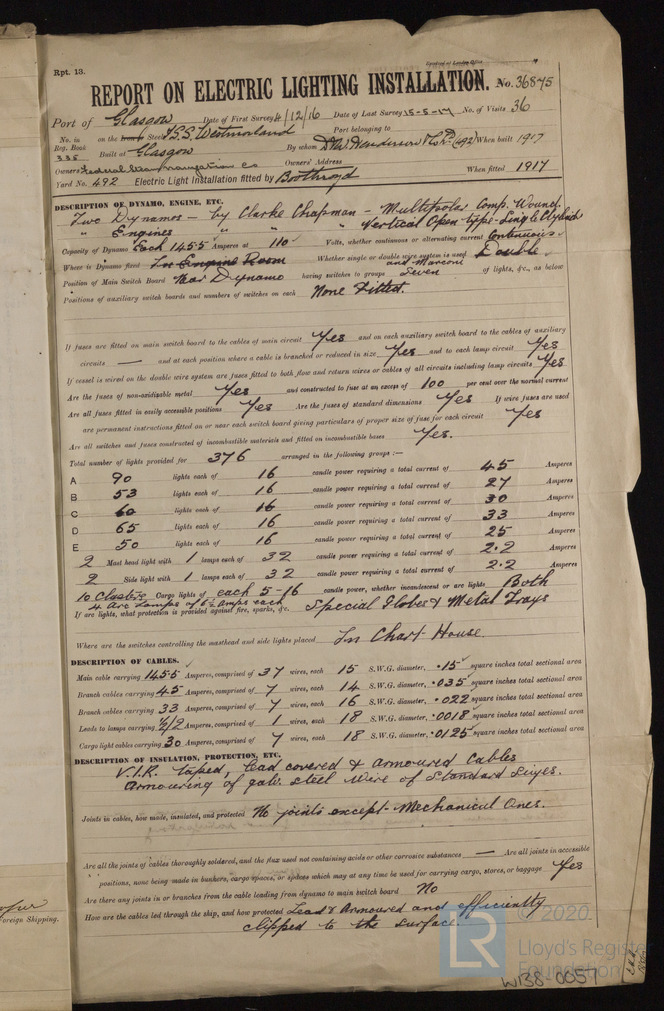 Rpt. 13.
REPORT ON ELECTRIC LIGHTING INSTALLATION. No. 36875
Port of Glasgow Date of First Survey 4/12/16 Date of Last Survey 15-5-17 No. of Visits 36
No. in Reg. Book 335 on the Iron or Steel T.S.S. Westmorland Port belonging to
Built at Glasgow By whom D & W Henderson & Co Ld. (492) When built 1917
Owners Federal Steam Navigation Co Owners' Address
Yard No. 492 Electric Light Installation fitted by Boothroyd When fitted 1917
DESCRIPTION OF DYNAMO, ENGINE, ETC.
Two Dynamos - by Clarke Chapman - Multipolar Comp. Wound.
" Engines " " " Vertical Open-type-Single Cylinder
Capacity of Dynamo Each 145.5 Amperes at 110 Volts, whether continuous or alternating current Continuous
Where is Dynamo fixed In Engine Room Whether single or double wire system is used Double
Position of Main Switch Board Near Dynamo having switches to groups Seven and Marconi of lights, &c., as below
Positions of auxiliary switch boards and numbers of switches on each None Fitted.
If fuses are fitted on main switch board to the cables of main circuit Yes and on each auxiliary switch board to the cables of auxiliary
circuits — and at each position where a cable is branched or reduced in size Yes and to each lamp circuit Yes
If vessel is wired on the double wire system are fuses fitted to both flow and return wires or cables of all circuits including lamp circuits Yes
Are the fuses of non-oxidizable metal Yes and constructed to fuse at an excess of 100 per cent over the normal current
Are all fuses fitted in easily accessible positions Yes Are the fuses of standard dimensions Yes If wire fuses are used
are permanent instructions fitted on or near each switch board giving particulars of proper size of fuse for each circuit Yes
Are all switches and fuses constructed of incombustible materials and fitted on incombustible bases Yes.
Total number of lights provided for 376 arranged in the following groups :—
A 90 lights each of 16 candle power requiring a total current of 45 Amperes
B 53 lights each of 16 candle power requiring a total current of 27 Amperes
C 60 lights each of 16 candle power requiring a total current of 30 Amperes
D 65 lights each of 16 candle power requiring a total current of 33 Amperes
E 50 lights each of 16 candle power requiring a total current of 25 Amperes
2 Mast head light with 1 lamps each of 32 candle power requiring a total current of 2.2 Amperes
2 Side light with 1 lamps each of 32 candle power requiring a total current of 2.2 Amperes
10 Clusters Cargo lights of each 5-16 candle power, whether incandescent or arc lights Both
4 Arc Lamps of 6½ Amps each
If arc lights, what protection is provided against fire, sparks, &c. Special Globes & Metal Trays
Where are the switches controlling the masthead and side lights placed In Chart House.
DESCRIPTION OF CABLES.
Main cable carrying 145.5 Amperes, comprised of 37 wires, each 15 S.W.G. diameter, .15 square inches total sectional area
Branch cables carrying 45 Amperes, comprised of 7 wires, each 14 S.W.G. diameter, .035 square inches total sectional area
Branch cables carrying 33 Amperes, comprised of 7 wires, each 16 S.W.G. diameter, .022 square inches total sectional area
Leads to lamps carrying ½/2 Amperes, comprised of 1 wires, each 18 S.W.G. diameter, .0018 square inches total sectional area
Cargo light cables carrying 30 Amperes, comprised of 7 wires, each 18 S.W.G. diameter, .0125 square inches total sectional area
DESCRIPTION OF INSULATION, PROTECTION, ETC.
V.I.R. taped, Lead covered & armoured Cables
Armouring of galv. steel wire of Standard Sizes.
Joints in cables, how made, insulated, and protected No joints except Mechanical Ones.
Are all the joints of cables thoroughly soldered, and the flux used not containing acids or other corrosive substances — Are all joints in accessible
positions, none being made in bunkers, cargo spaces, or spaces which may at any time be used for carrying cargo, stores, or baggage Yes
Are there any joints in or branches from the cable leading from dynamo to main switch board No
How are the cables led through the ship, and how protected Lead & Armoured and efficiently
clipped to the surface.
Foreign Shipping.
LR
© 2020.
Lloyd's Register
Foundation
W138-0057